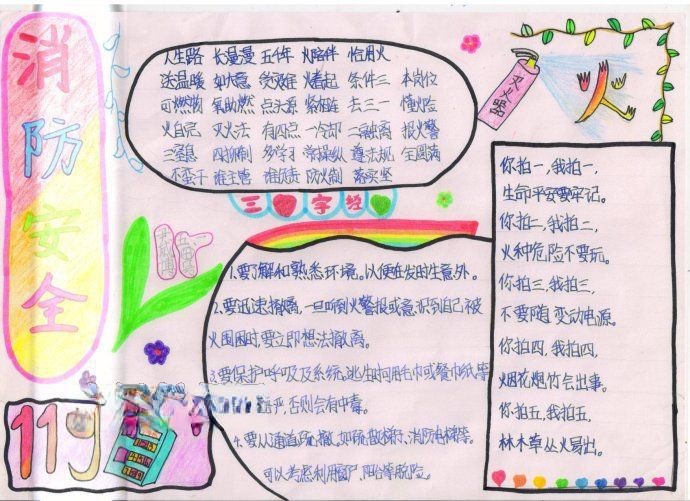 消防安全
人生路 长漫漫 五千年 火陪伴 恰用火
送温暖 如 意 效 看起 条件三 本岗位
可燃物 氧助燃 点火源 紧相连 去三一 懂火险
火自完 灭火法 有四点 一冷却 二融离 报火警
三窒息 四抑制 多学习 常操纵 遵法规 全圆满
不蛮干 谁主管 谁负责 防火制 落实坚
三字经
灭火器
火
你拍一,我拍一,
生命平安要牢记。
你拍二,我拍二,
火种危险不要玩。
你拍三,我拍三,
不要随变动电源。
你拍四,我拍四,
烟花炮竹会出事。
你拍五,我拍五,
林木草丛火易出。
1.要了解和熟悉环境。以便在发时生意外。
2.要迅速撤离,一旦听到火警报或意识到自己被
火围困时,要立即想法撤离。
3.要保护呼吸及系统。逃生时用毛巾或餐巾纸等
严,否则会有中毒。
4.要从通道疏撤。如疏散梯疔、消防电梯等。
可以考虑利用窗户、阳台等脱险。
119